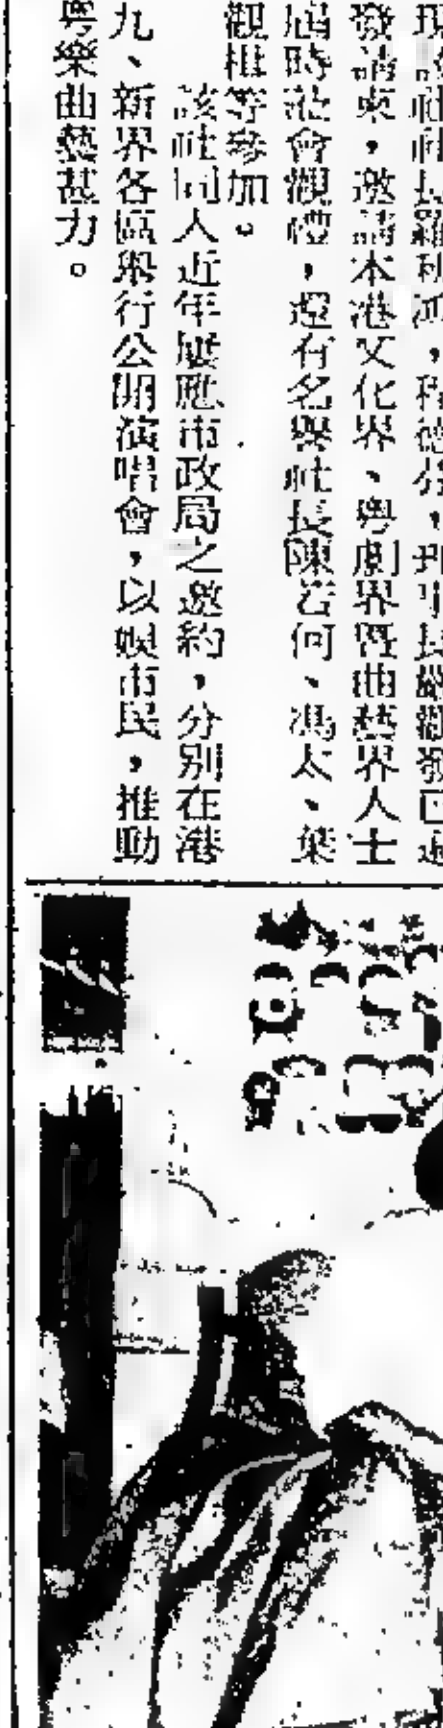 現該社社長羅秋鴻，程德芬，理事長嚴觀發已
發請柬，邀請本港文化界、粵劇界曁曲藝界人士
屆時蒞會觀禮，還有名譽社長陳若何、馮太、葉
觀椪等參加。
該社同人近年屢應市政局之邀約，分別在港
九、新界各區舉行公開演唱會，以娛市民，推動
粵樂曲藝甚力。